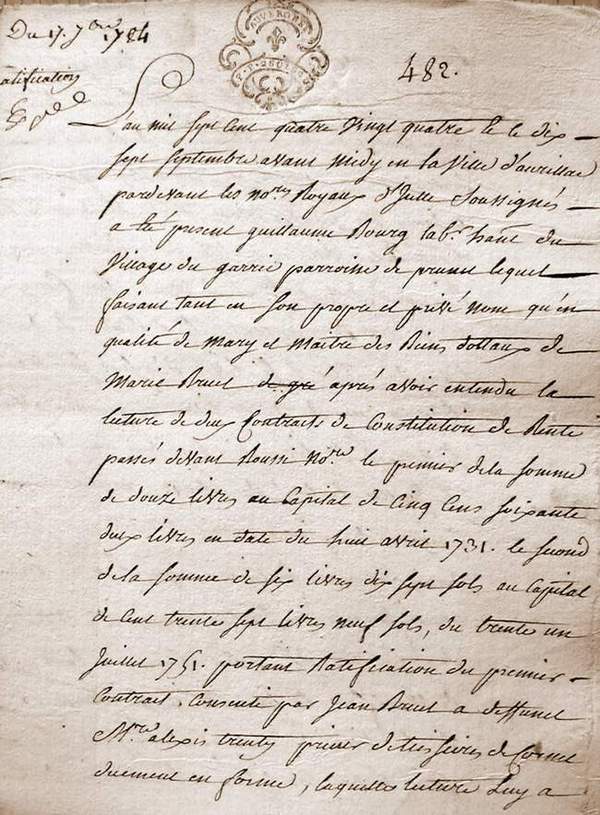 Du 17. 7bre 1784
482.
ratification
AUVERGNE
L'an mil sept cent quatre vingt quatre le dix
sept septembre avant midy en la ville d'aurillac
pardevant les nores Royaux d'Icelle soussignés
a été présent guillaume Bourg labr hant du
village du garric parroisse de prunet lequel
faisant tant en son propre et privé nom qu'en
qualité de mary et maitre des Biens dottaux de
Marie Bruel de gré aprés avoir entendu la
lecture de deux Contracts de Constitution de Rente
passés devant Roussi nore le premier de la somme
de douze livres au Capital de Cinq Cens soixante
deux livres en date du huit avril 1731. le second
de la somme de six livres dix sept sols au Capital
de Cent trente sept livres neuf sols, du trente un
Juillet 1751. portant Ratification du premier
Contract, Consenti par Jean Bruel a deffunct
Mre alexis trenty prieur de
duement en forme, laquelle lecture luy a